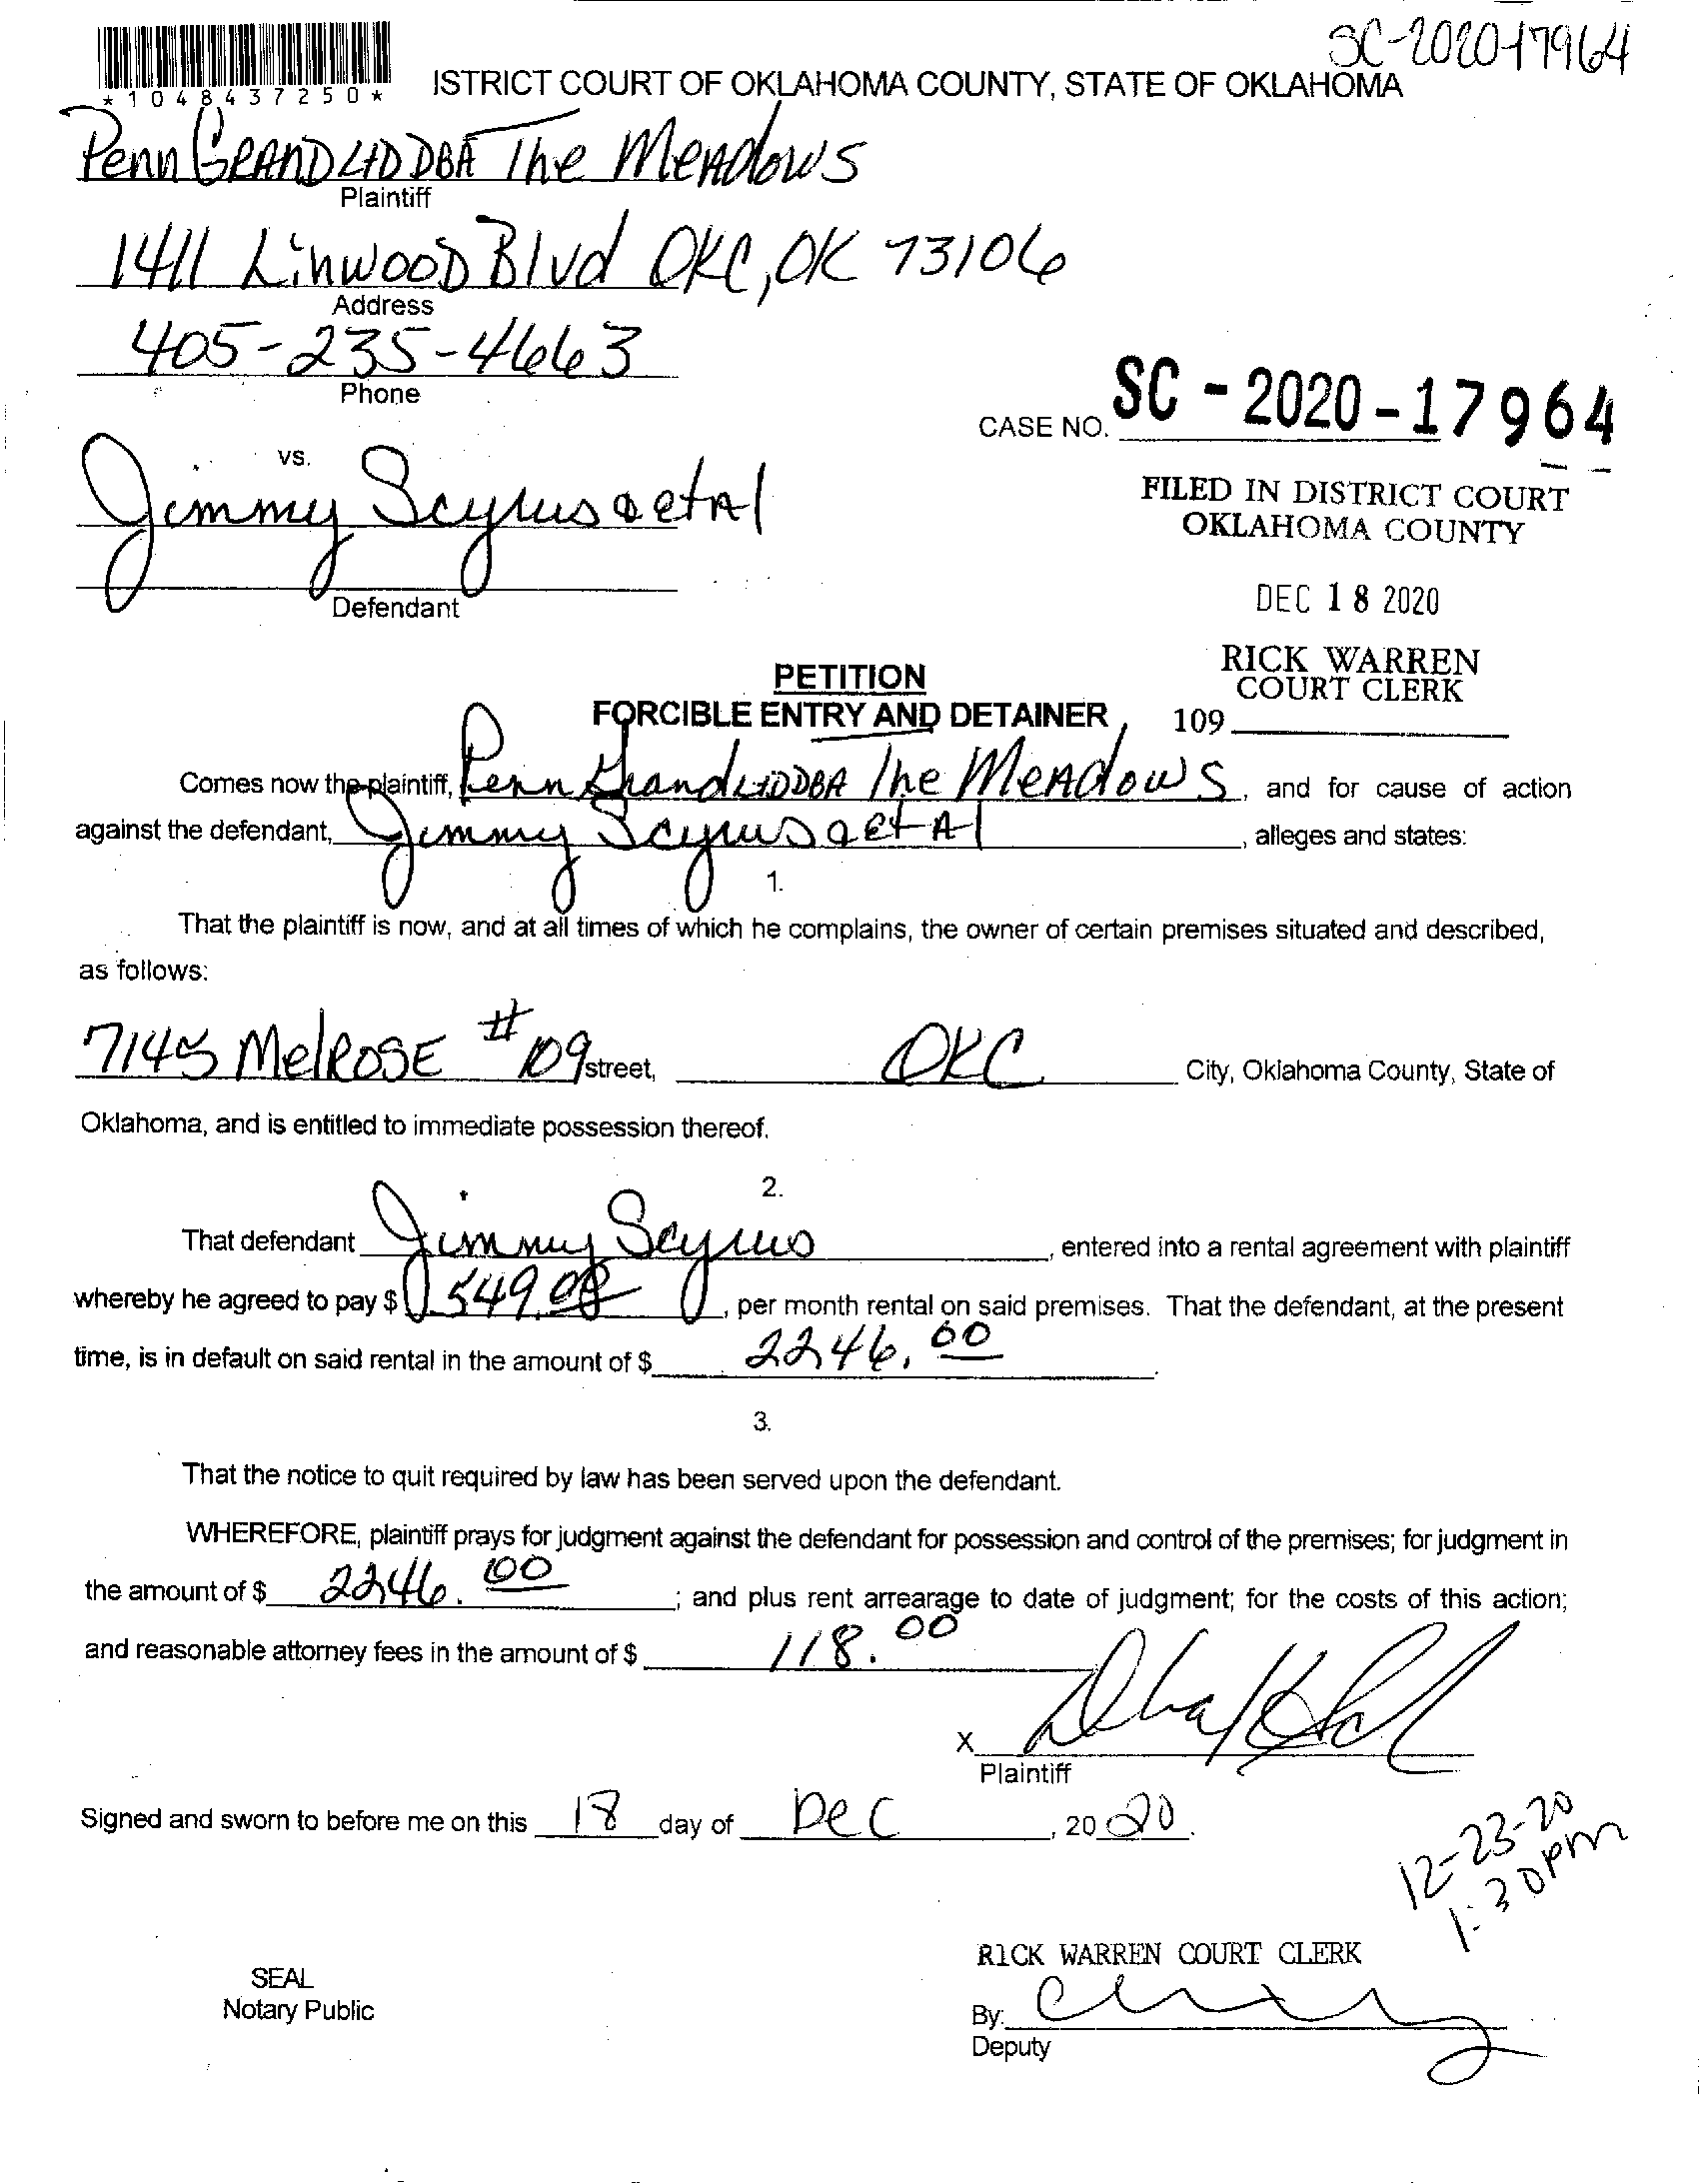 SC-2020-17964
*1048437250*
ISTRICT COURT OF OKLAHOMA COUNTY, STATE OF OKLAHOMA
Penn GRAND LTD DBA The Meadows
Plaintiff
1411 Linwood Blvd OKC, OK 73106
Address
405-235-4663
Phone
CASE NO. SC - 2020 - 17964
vs.
Jimmy Scyrus et Al
Defendant
FILED IN DISTRICT COURT
OKLAHOMA COUNTY
DEC 18 2020
RICK WARREN
COURT CLERK
109
PETITION
FORCIBLE ENTRY AND DETAINER
Comes now the plaintiff, Penn Grand LTD DBA The Meadows, and for cause of action
against the defendant, Jimmy Scyrus et Al, alleges and states:
1.
That the plaintiff is now, and at all times of which he complains, the owner of certain premises situated and described,
as follows:
7145 Melrose #109 street, OKC City, Oklahoma County, State of
Oklahoma, and is entitled to immediate possession thereof.
2.
That defendant Jimmy Scyrus, entered into a rental agreement with plaintiff
whereby he agreed to pay $ 549.00, per month rental on said premises. That the defendant, at the present
time, is in default on said rental in the amount of $ 2246.00.
3.
That the notice to quit required by law has been served upon the defendant.
WHEREFORE, plaintiff prays for judgment against the defendant for possession and control of the premises; for judgment in
the amount of $ 2246.00; and plus rent arrearage to date of judgment; for the costs of this action;
and reasonable attorney fees in the amount of $ 118.00
X
Plaintiff
Signed and sworn to before me on this 18 day of Dec, 2020.
12-23-20
1:30pm
RICK WARREN COURT CLERK
SEAL
Notary Public
By:
Deputy